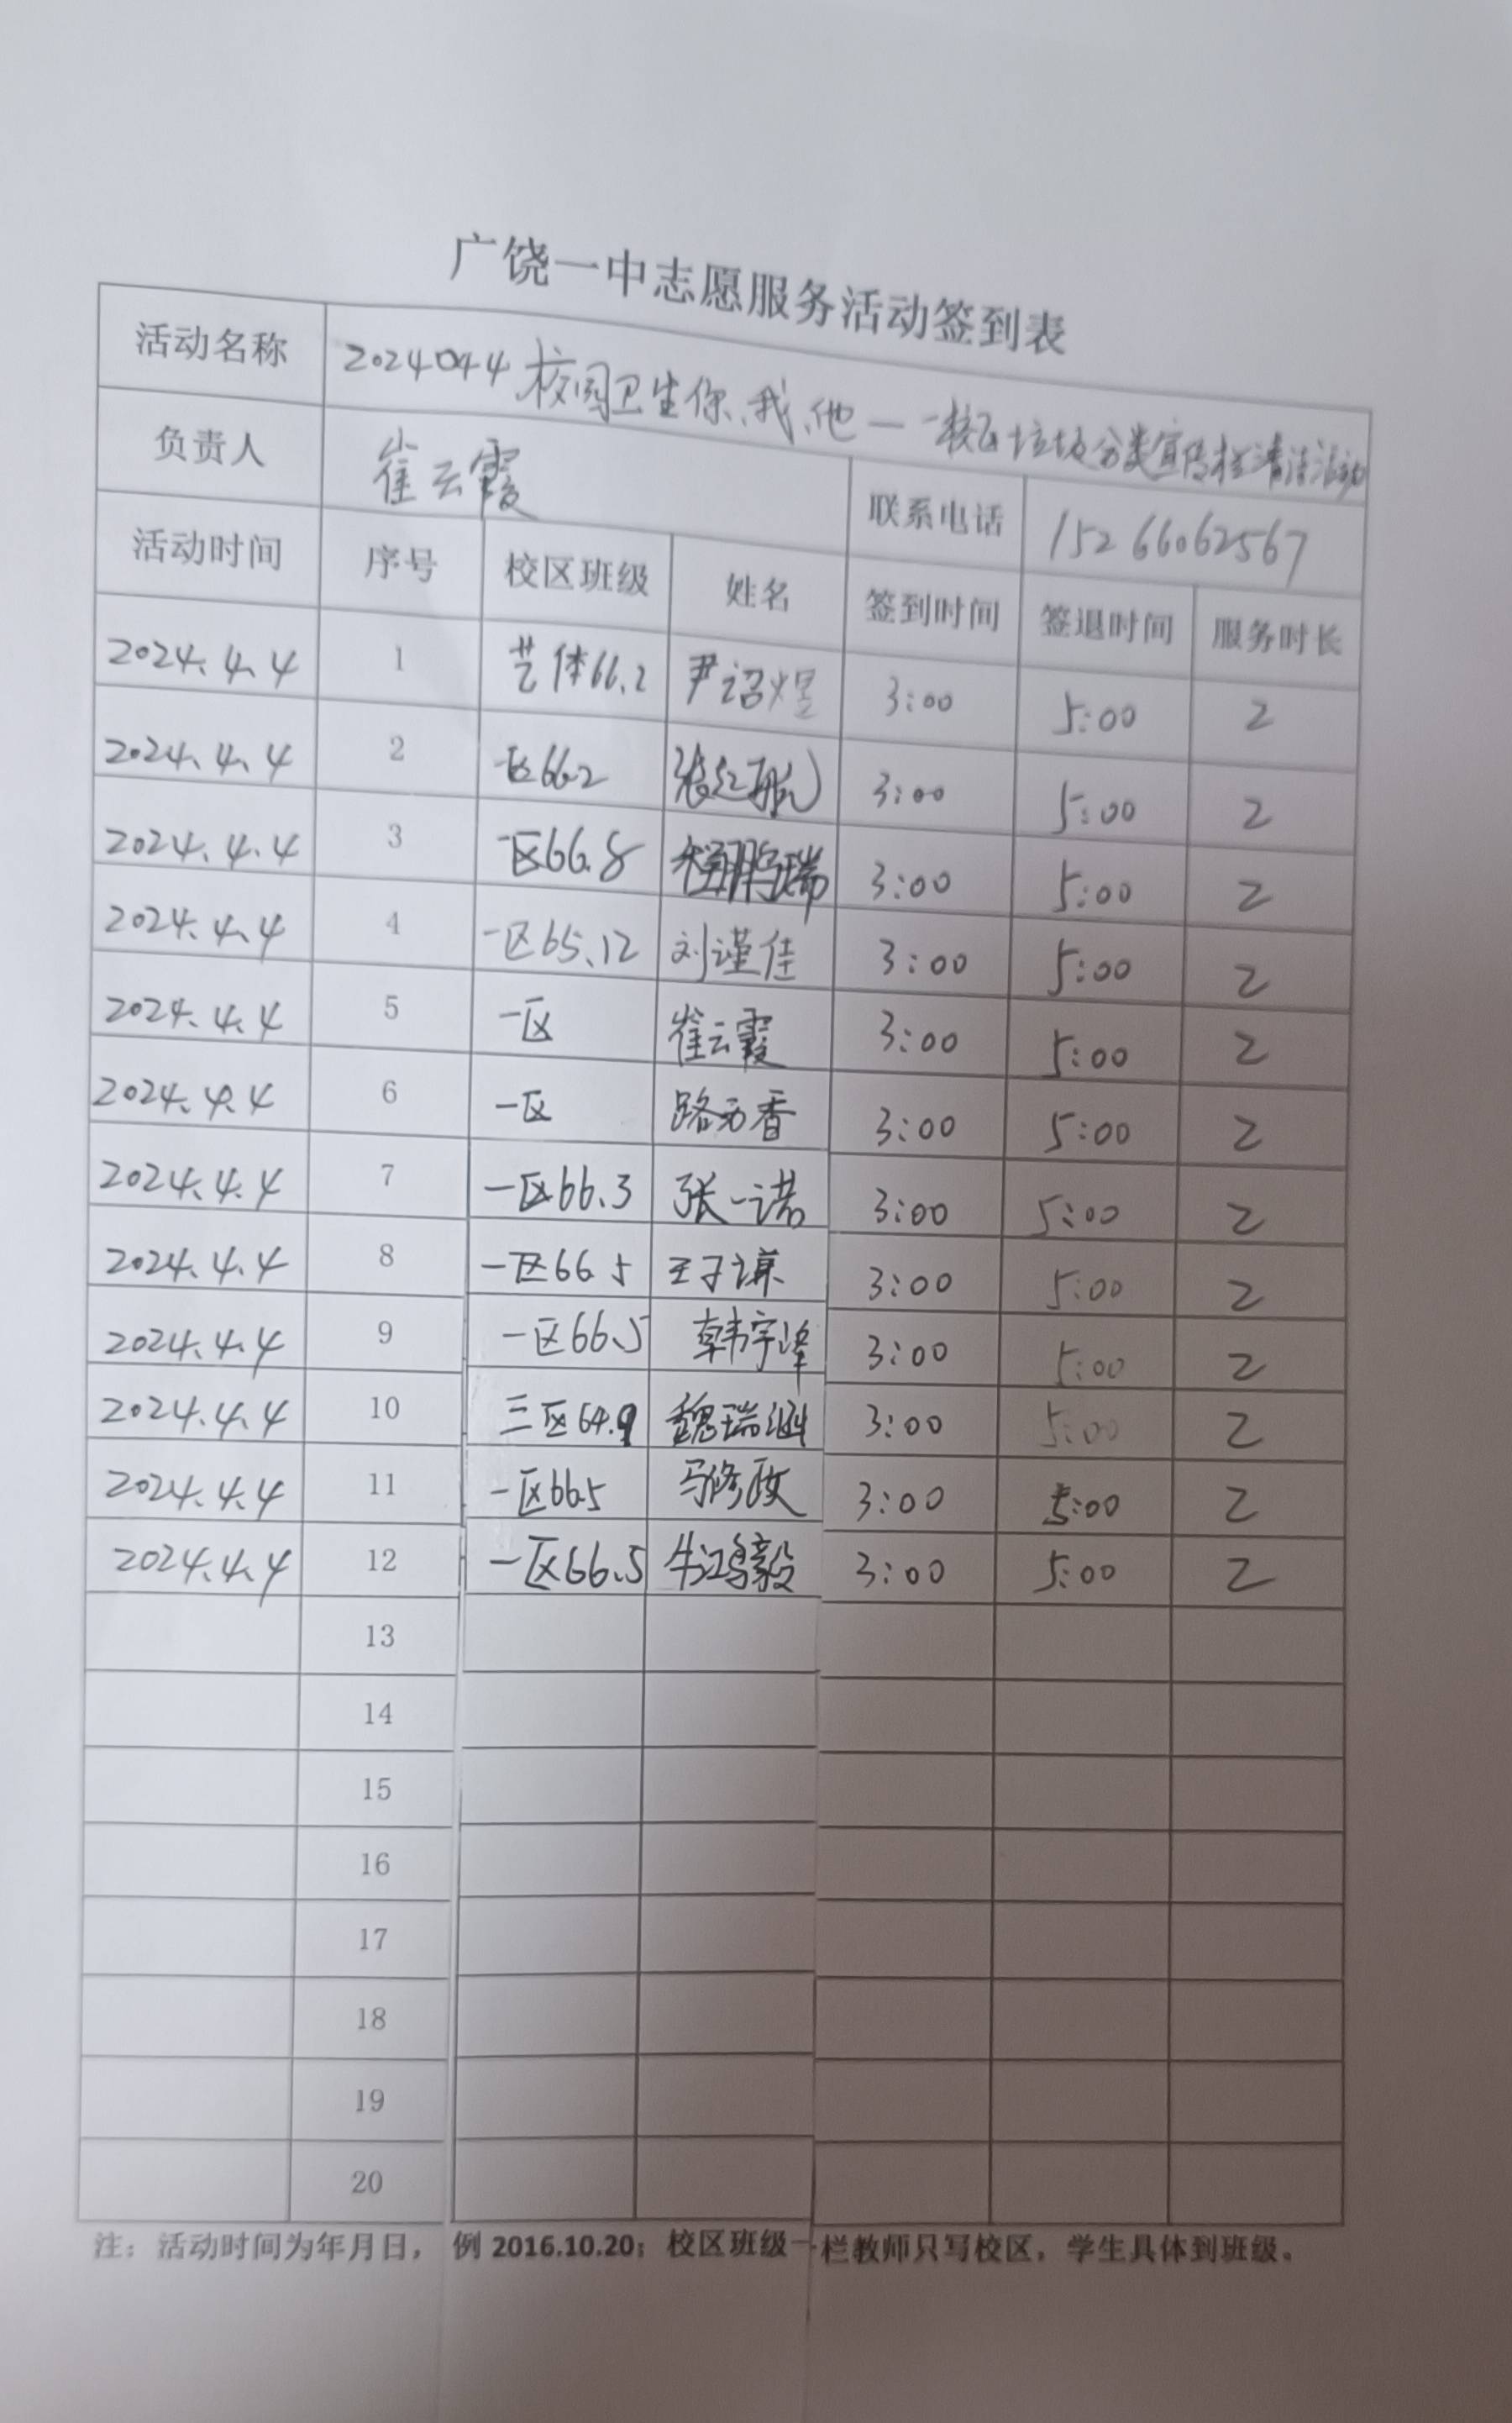 广饶一中志愿服务活动签到表
活动名称 2024044校园卫生你、我、他—一校区垃圾分类宣传栏清洁活动
负责人 崔云霞 联系电话 15266062567
活动时间 序号 校区班级 姓名 签到时间 签退时间 服务时长
2024.4.4 1 艺体66.2 尹诏煜 3:00 5:00 2
2024.4.4 2 一区66.2 3:00 5:00 2
2024.4.4 3 一区66.8 程鹏瑞 3:00 5:00 2
2024.4.4 4 一区65.12 刘谨佳 3:00 5:00 2
2024.4.4 5 一区 崔云霞 3:00 5:00 2
2024.4.4 6 一区 路香 3:00 5:00 2
2024.4.4 7 一区66.3 张一诺 3:00 5:00 2
2024.4.4 8 一区66.5 王子谦 3:00 5:00 2
2024.4.4 9 一区66.5 韩宇泽 3:00 5:00 2
2024.4.4 10 三区64.9 魏瑞涵 3:00 5:00 2
2024.4.4 11 一区66.5 马修政 3:00 5:00 2
2024.4.4 12 一区66.5 牛鸿毅 3:00 5:00 2
13
14
15
16
17
18
19
20
注：活动时间为年月日，例2016.10.20；校区班级一栏教师只写校区，学生具体到班级。